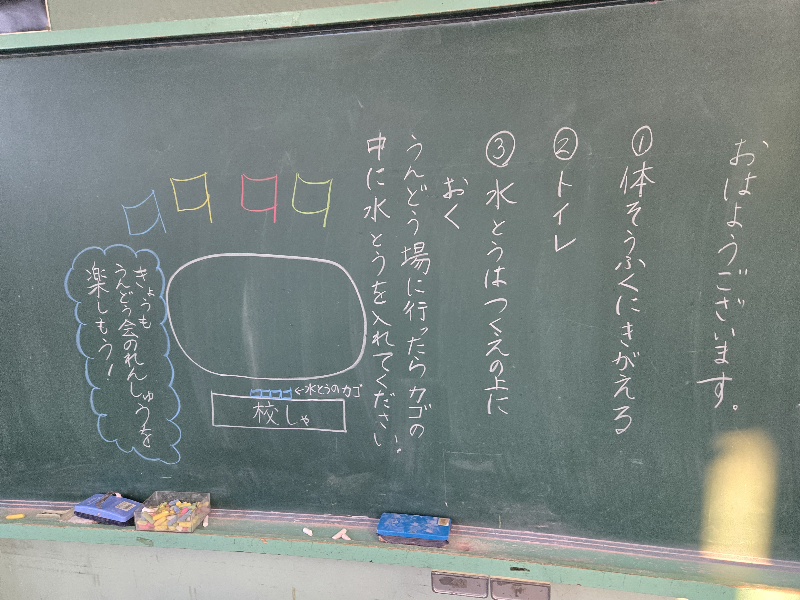 おはようございます。
①体そうふくにきがえる
②トイレ
③水とうはつくえの上に
おく
うんどう場に行ったらカゴの
中に水とうを入れてください。
←水とうのカゴ
校しゃ
きょうも
うんどう会のれんしゅうを
楽しもう!